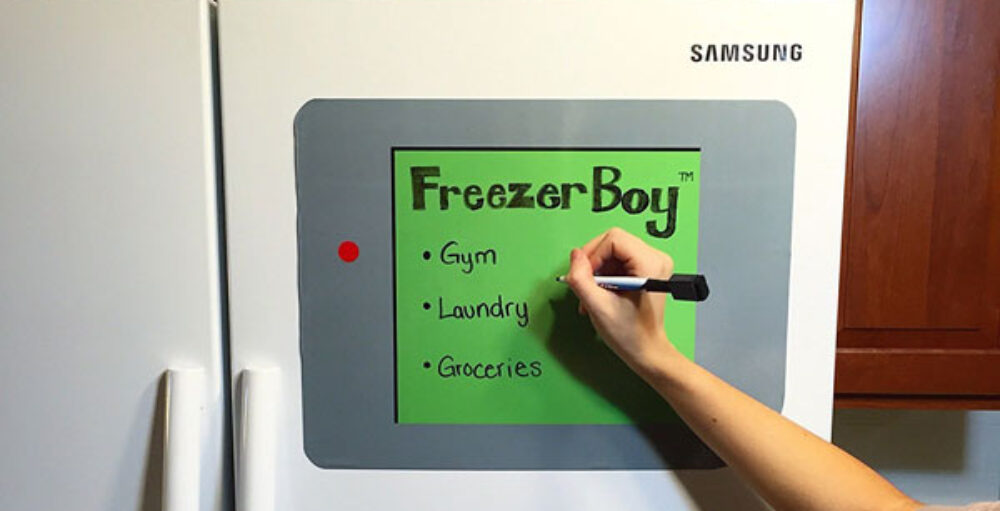 SAMSUNG
FreezerBoy™
• Gym
• Laundry
• Groceries